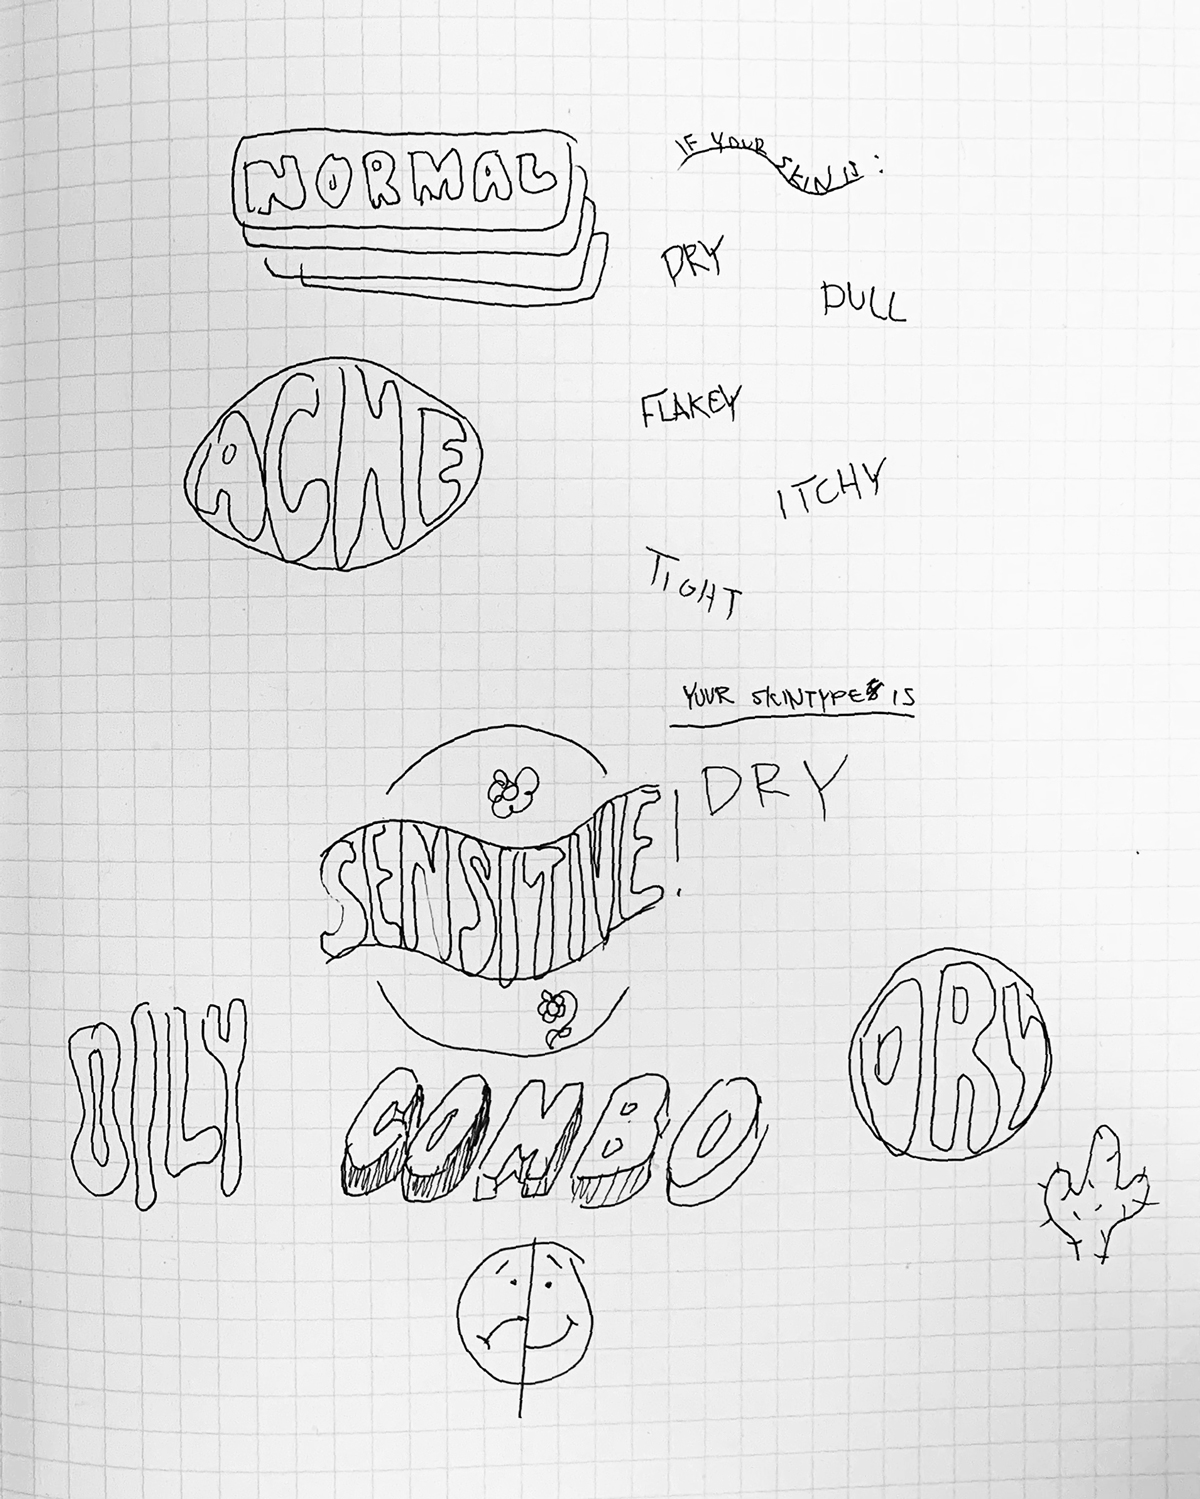 NORMAL
IF YOUR SKIN IS:
DRY
DULL
ACNE
FLAKEY
ITCHY
TIGHT
YOUR SKINTYPE IS
DRY
SENSITIVE!
OILY
COMBO
DRY